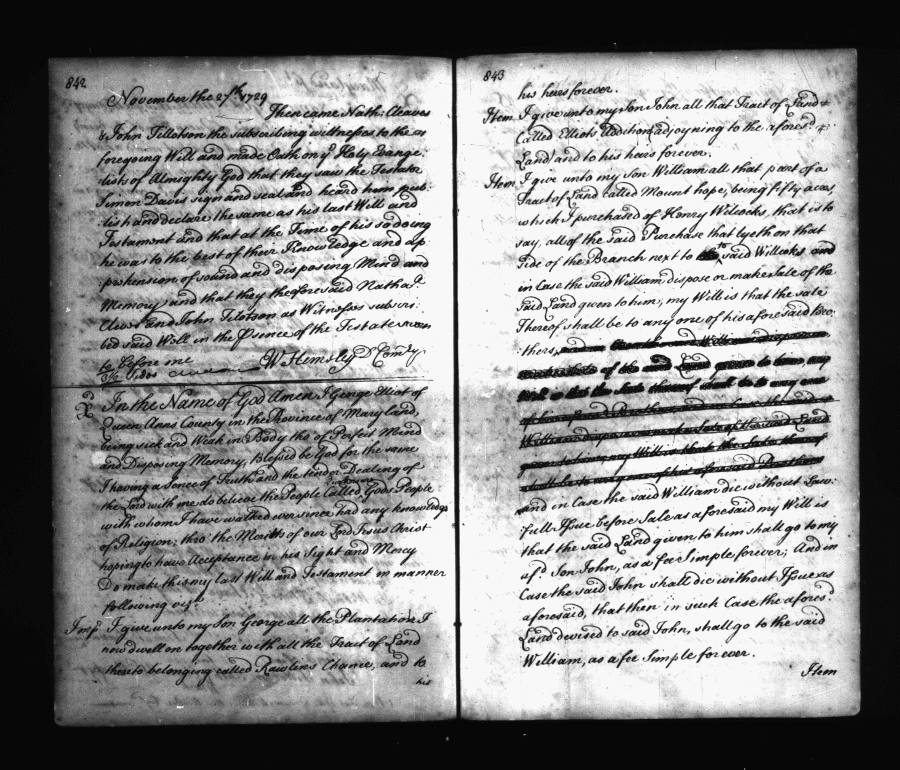 842
November the 27th 1729
Then came Nath: Cleaves
& John Tillotson the subscribing wittnesses to the
foregoing Will and made Oath on ye Holy Evange:
lists of Almighty God that they saw the Testator
Simon Davis sign and seal and heard him pub:
lish and declare the same as his last Will and
Testament and that at the Time of his so doing
he was to the best of their Knowledge and ap
prehension of sound and disposing Mind and
Memory and that they the foresaid Nathal
Cleves and John Tilotson as Witnesses subscri:
bed said Will in the Prsince of the Testate sworn
to before me
W Hemsley D Comry
In the Name of God Amen I George Eliot of
Queen Anns County in the Province of Maryland,
being sick and Weak in Body tho of Perfect Mind
and Disposing Memory, Blessed be God for the same
I having a Sence of Truth and the tender Dealing of
the Lord with me do believe the People Called Gods People
with whom I have walked ever since had any knowledge
of Religion; thro the Merits of our Lord Jesus Christ
hoping to have Acceptance in his Sight and Mercy
Do make this my last Will and Testament in manner
following vizt
Imps I give unto my Son George all the Plantation I
now dwell on together with all the Tract of Land
thereto belonging called Rawlins Chance, and to
his
843
his heirs forever.
Item I give unto my Son John all that Tract of Land
Called Elliots Addition adjoyning to the aforesd
Land and to his heirs forever.
Item I give unto my Son William all that part of a
Tract of Land called Mount hope, being fifty acres,
which I purchased of Henry Wilcocks, that is to
say, all of the said Purchase that lyeth on that
side of the Branch next to said Willcoks and
in Case the said William dispose or make Sale of the
said Land given to him; my Will is that the sale
Thereof shall be to any one of his aforesaid Bro:
thers,
of the said Land given to him, my
Will is that the Sale thereof shall be to any one
given to him; my Will is that the Sale thereof
and in Case the said William die without Law:
full Issue before Sale as aforesaid my Will is
that the said Land given to him shall go to my
afd Son John, as a fee Simple forever; And in
Case the said John shall die without Issue as
aforesaid, that then in such Case the aforesd
Land devised to said John, shall go to the said
William, as a fee Simple for ever.
Item